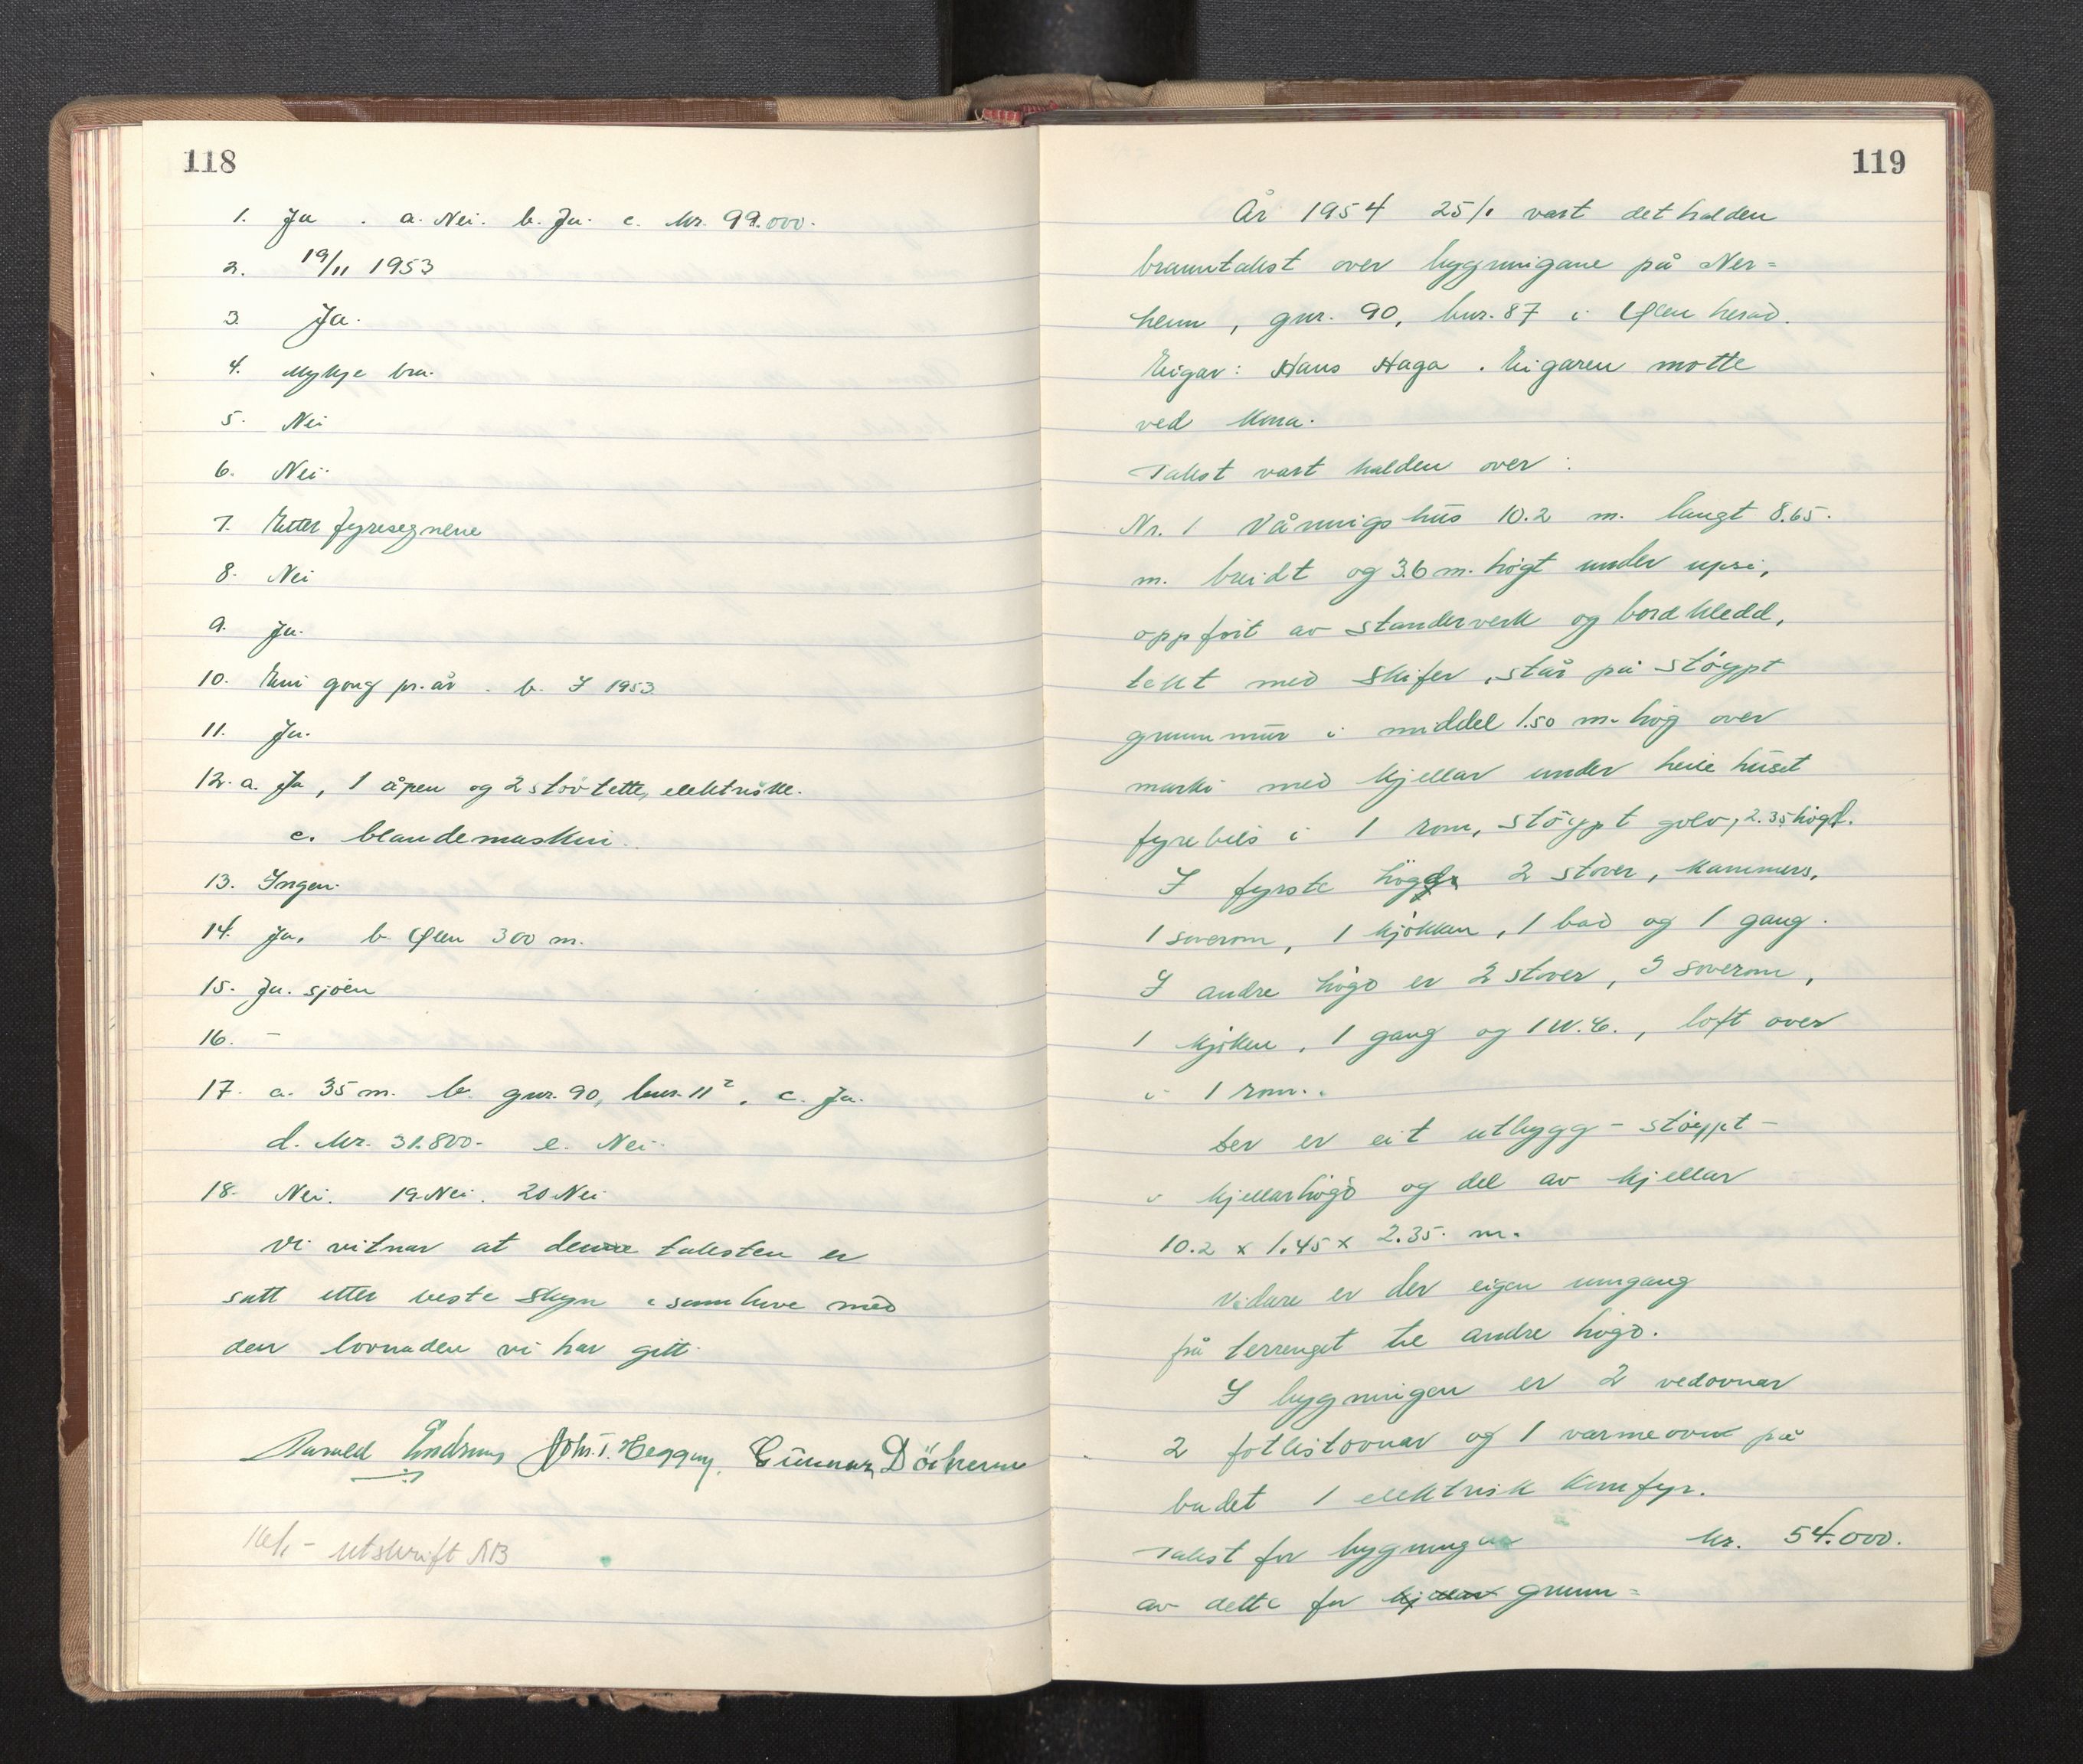 118
1. Ja . a. Nei. b. Ja. c. kr. 99.000.
2. 19/11 1953
3. Ja.
4. Mykje bra.
5. Nei
6. Nei.
7. Etter fyresegnene
8. Nei
9. Ja.
10. Ein gong pr. år . b. I 1953.
11. Ja.
12. a. Ja, 1 åpen og 2 støvtette, elektriske.
c. blandemaskin.
13. Ingen.
14. Ja, b. Ølen 300 m.
15. Ja. sjøen
16. –
17. a. 35 m. b. gnr. 90, bnr. 11², c. Ja.
d. kr. 31.800.- e. Nei.
18. Nei. 19. Nei. 20 Nei
Vi vitnar at denne taksten er
sett etter beste skyn i samhøve med
den lovnaden vi har gitt.
Gunnar
utskrift
119
År 1954 25/1 vart det halden
branntakst over bygningane på Ner=
heim, gnr. 90, bnr. 87 i Ølen herad.
Eigar: Hans Haga . Eigaren møtte
ved kona.
Takst vart halden over :
Nr. 1 Våningshus 10.2 m. langt 8.65.
m. breidt og 3.6 m. høgt under upsi,
oppført av standerverk og bordkledd,
tekt med skifer, står på støypt
grunnmur i middel 1.50 m. høg over
marki med kjellar under heile huset
fyrebels i 1 rom, støypt golv, 2.35 høgt.
I fyrste høgd 2 stover, kammers,
1 soverom, 1 kjøkken, 1 bad og 1 gang.
I andre høgd er 2 stover, 3 soverom,
1 kjøken, 1 gang og 1 W.C., loft over
i 1 rom.
Der er eit utbygg – støypt –
i kjellarhøgd og del av kjellar
10.2 x 1.45 x 2.35. m.
Vidare er der eigen inngang
frå terrenget til andre høgd.
I bygningen er 2 vedovnar
2 fotlistovnar og 1 varmeovn på
badet 1 elektrisk komfyr.
Takst for bygningen kr. 54.000.
av dette for kjellar grunn=